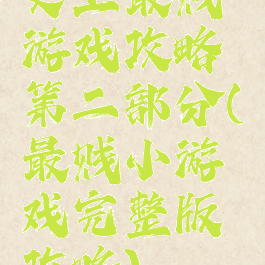 史上最贱
游戏攻略
第二部分(
最贱小游
戏完整版
攻略)